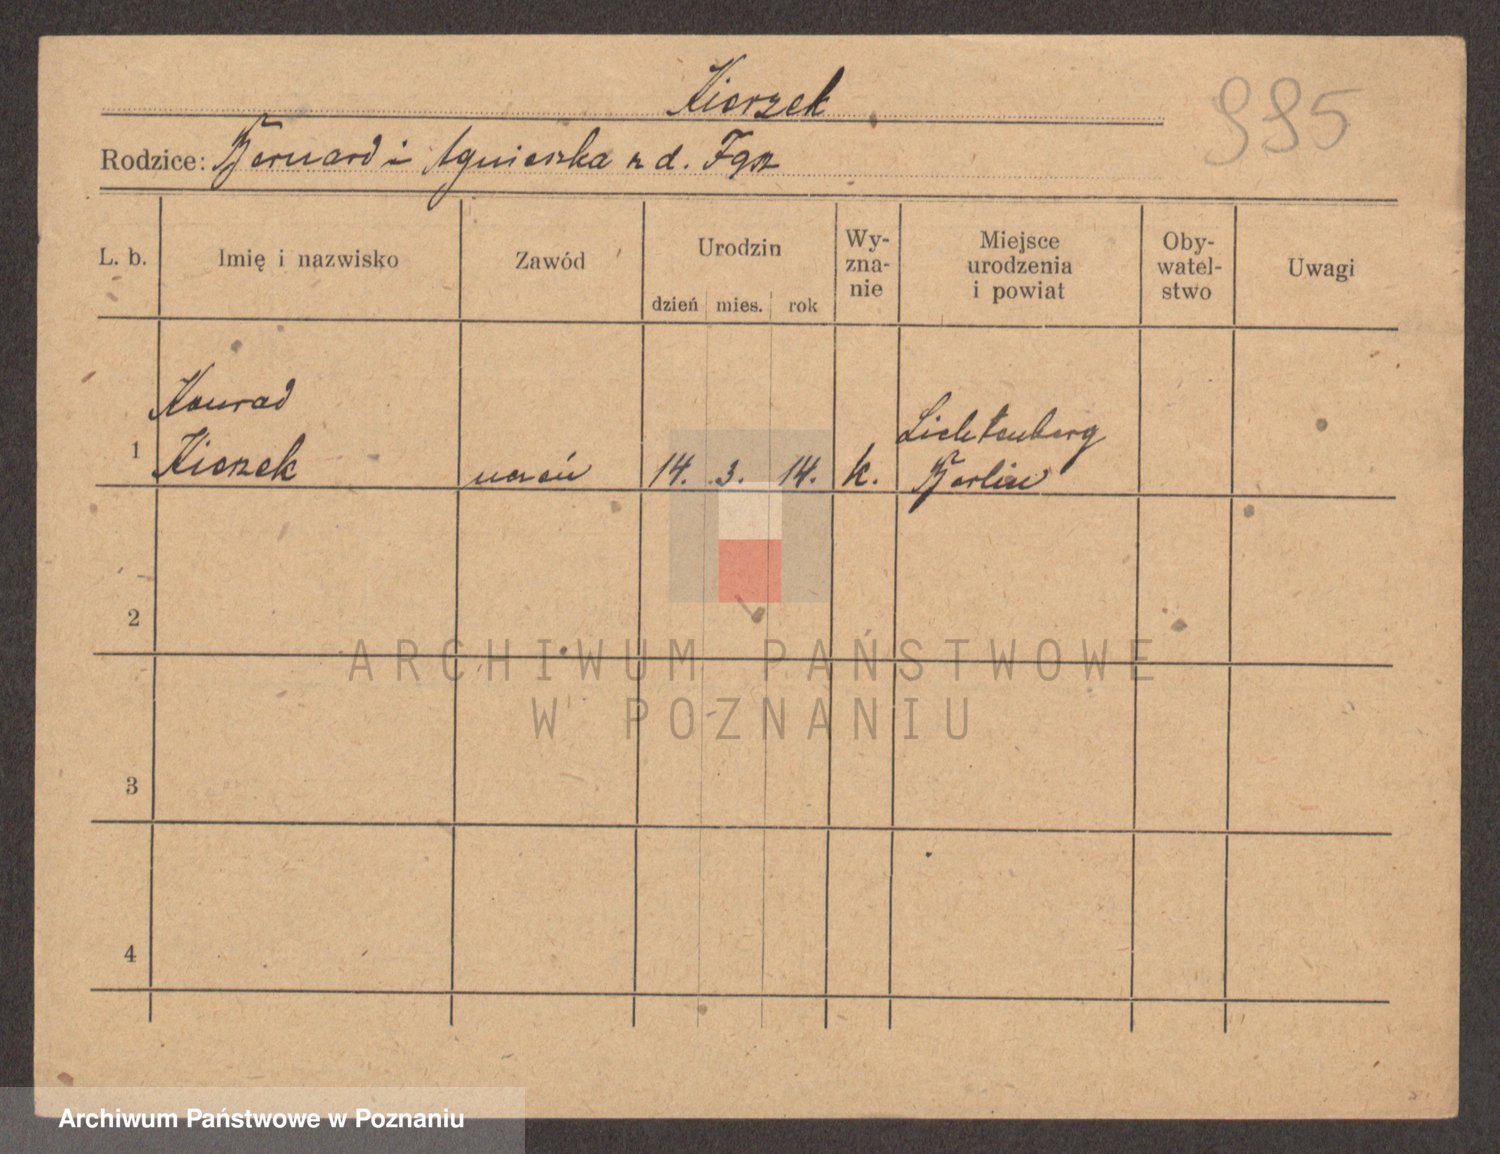 Kierzek
995
Rodzice: Bernard i Agnieszka z d.
L. b. Imię i nazwisko Zawód Urodzin dzień mies. rok Wyzna-nie Miejsce urodzenia i powiat Oby-watel-stwo Uwagi
Konrad
1 Kierzek uczeń 14. 3. 14. k. Lichtenberg
Berlin
2
ARCHIWUM PAŃSTWOWE
W POZNANIU
3
4
Archiwum Państwowe w Poznaniu